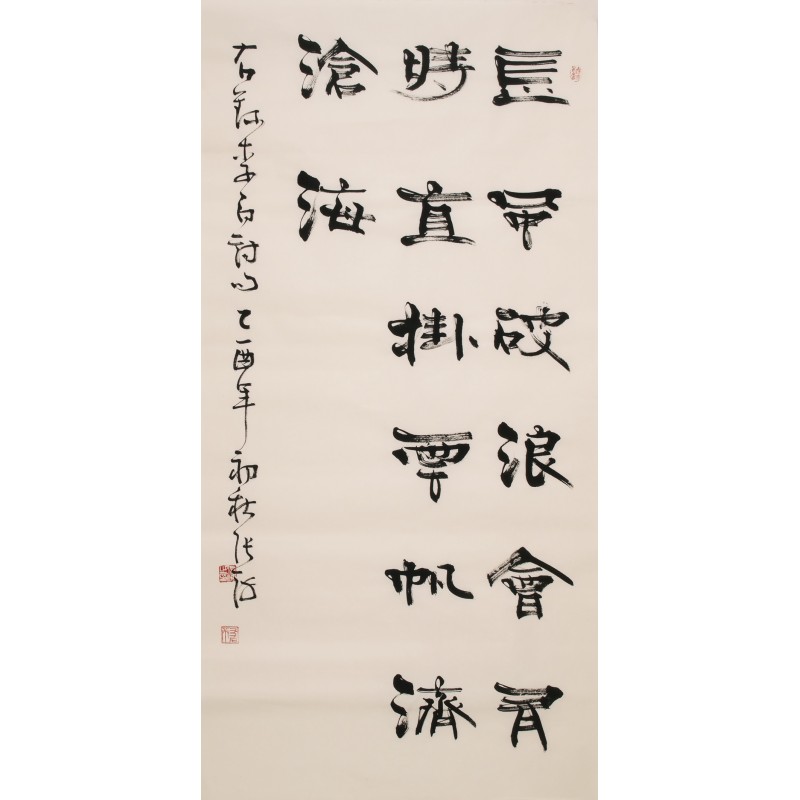 長風破浪會有
時直掛雲帆濟
滄海
右錄李白詩句乙酉年初秋張